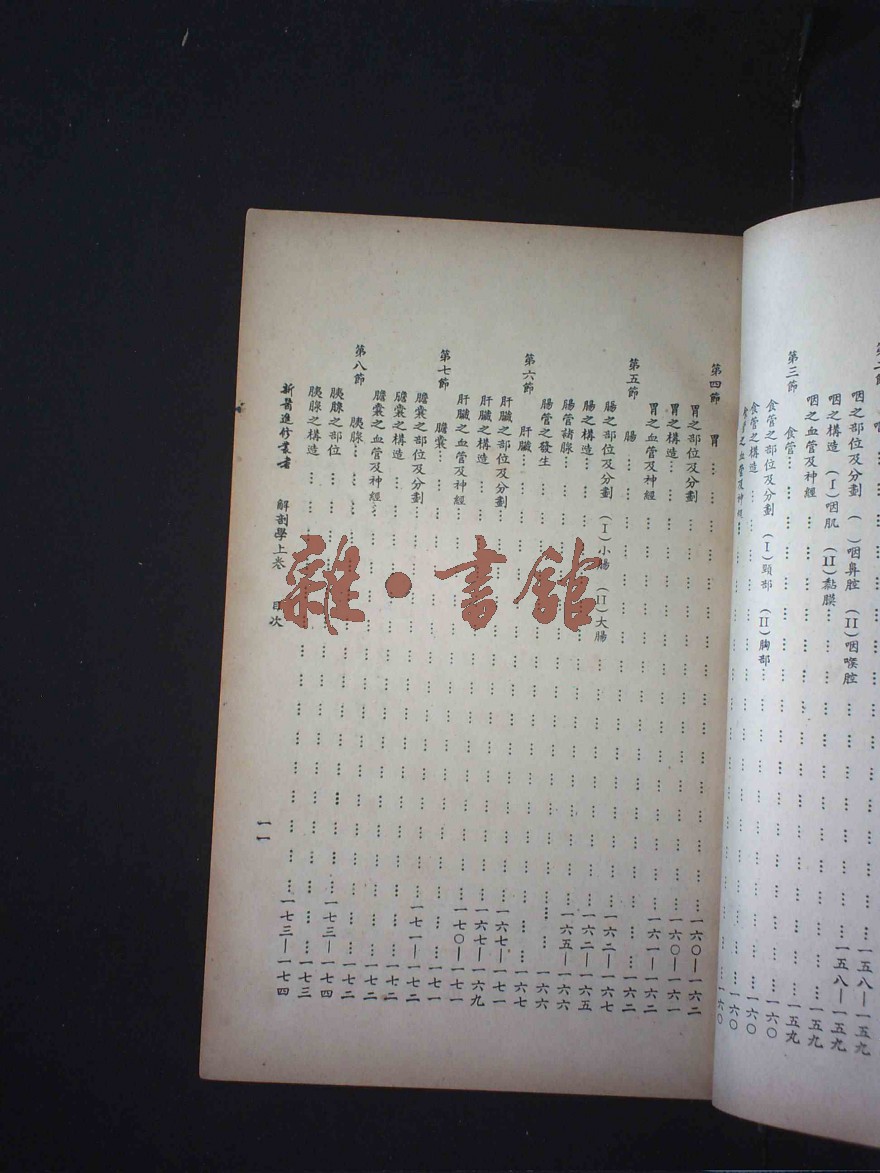 咽之部位及分劃 ( )咽鼻腔 (II)咽喉腔 … … … … … …一五八—一五九
咽之構造 (I)咽肌 (II)黏膜… … … … … … …一五八—一五九
咽之血管及神經 … … … … … … … … … …一五九
第三節 食管… … … … … … … … … … … …一五九
食管之部位及分劃 (I)頸部 (II)胸部… … … … … … …一六〇
食管之構造… … … … … … … … … … … …一六〇
食管之血管及神經… … … … … … … … … … …一六〇
第四節 胃… … … … … … … … … … …一六〇—一六二
胃之部位及分劃… … … … … … … … …一六〇—一六一
胃之構造… … … … … … … … … …一六一—一六二
胃之血管及神經 … … … … … … … … … …一六二
第五節 腸… … … … … … … … … … …一六二—一六七
腸之部位及分劃 (I)小腸 (II)大腸… … … … … …一六二—一六五
腸之構造… … … … … … … … … …一六五—一六六
腸管諸腺… … … … … … … … … … …一六六
腸管之發生… … … … … … … … … … …一六七
第六節 肝臟… … … … … … … … … …一六七—一七一
肝臟之部位及分劃… … … … … … … …一六七—一六九
肝臟之構造 … … … … … … … … …一七〇—一七一
肝臟之血管及神經… … … … … … … … … …一七一
第七節 膽囊… … … … … … … … … …一七一—一七二
膽囊之部位及分劃… … … … … … … … … …一七二
膽囊之構造 … … … … … … … … … …一七二
膽囊之血管及神經… … … … … … … … … …一七二
第八節 胰腺… … … … … … … … … …一七三—一七四
胰腺之部位… … … … … … … … … … …一七三
胰腺之構造 … … … … … … … … …一七三—一七四
新醫進修叢書 解剖學上卷 目次 一一
雜·書館